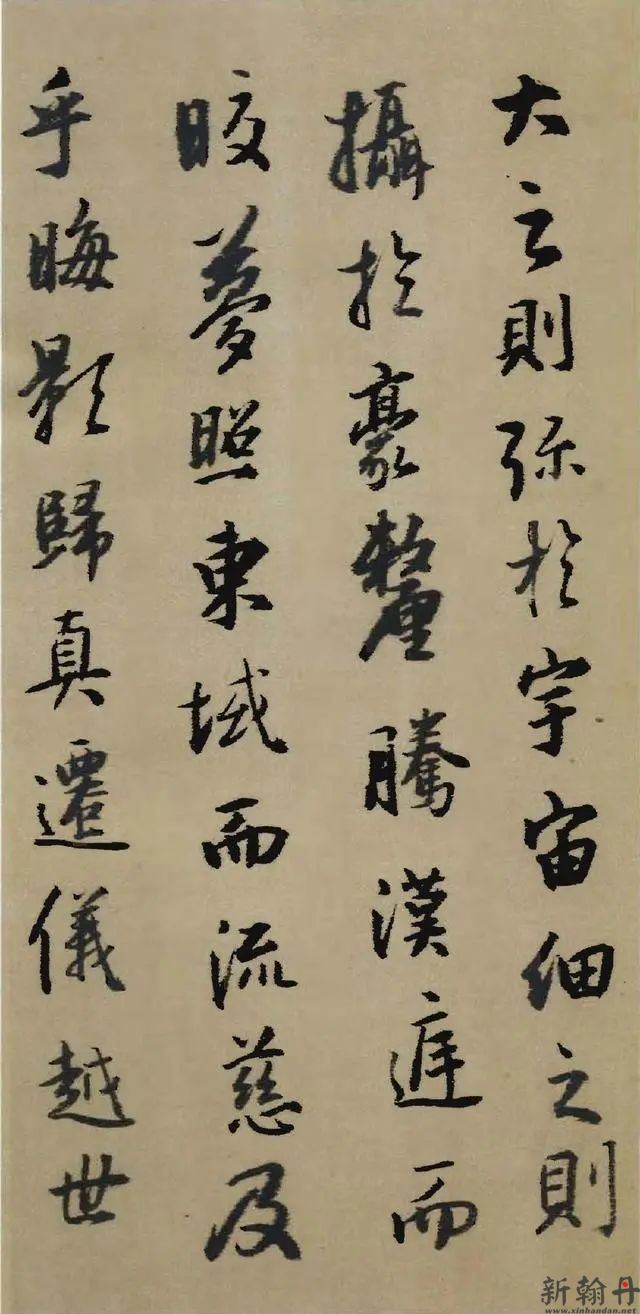 大之則弥於宇宙細之則
攝於豪釐騰漢庭而
皎夢照東域而流慈及
乎晦影歸真遷儀越世
新翰丹
www.xinhandan.com